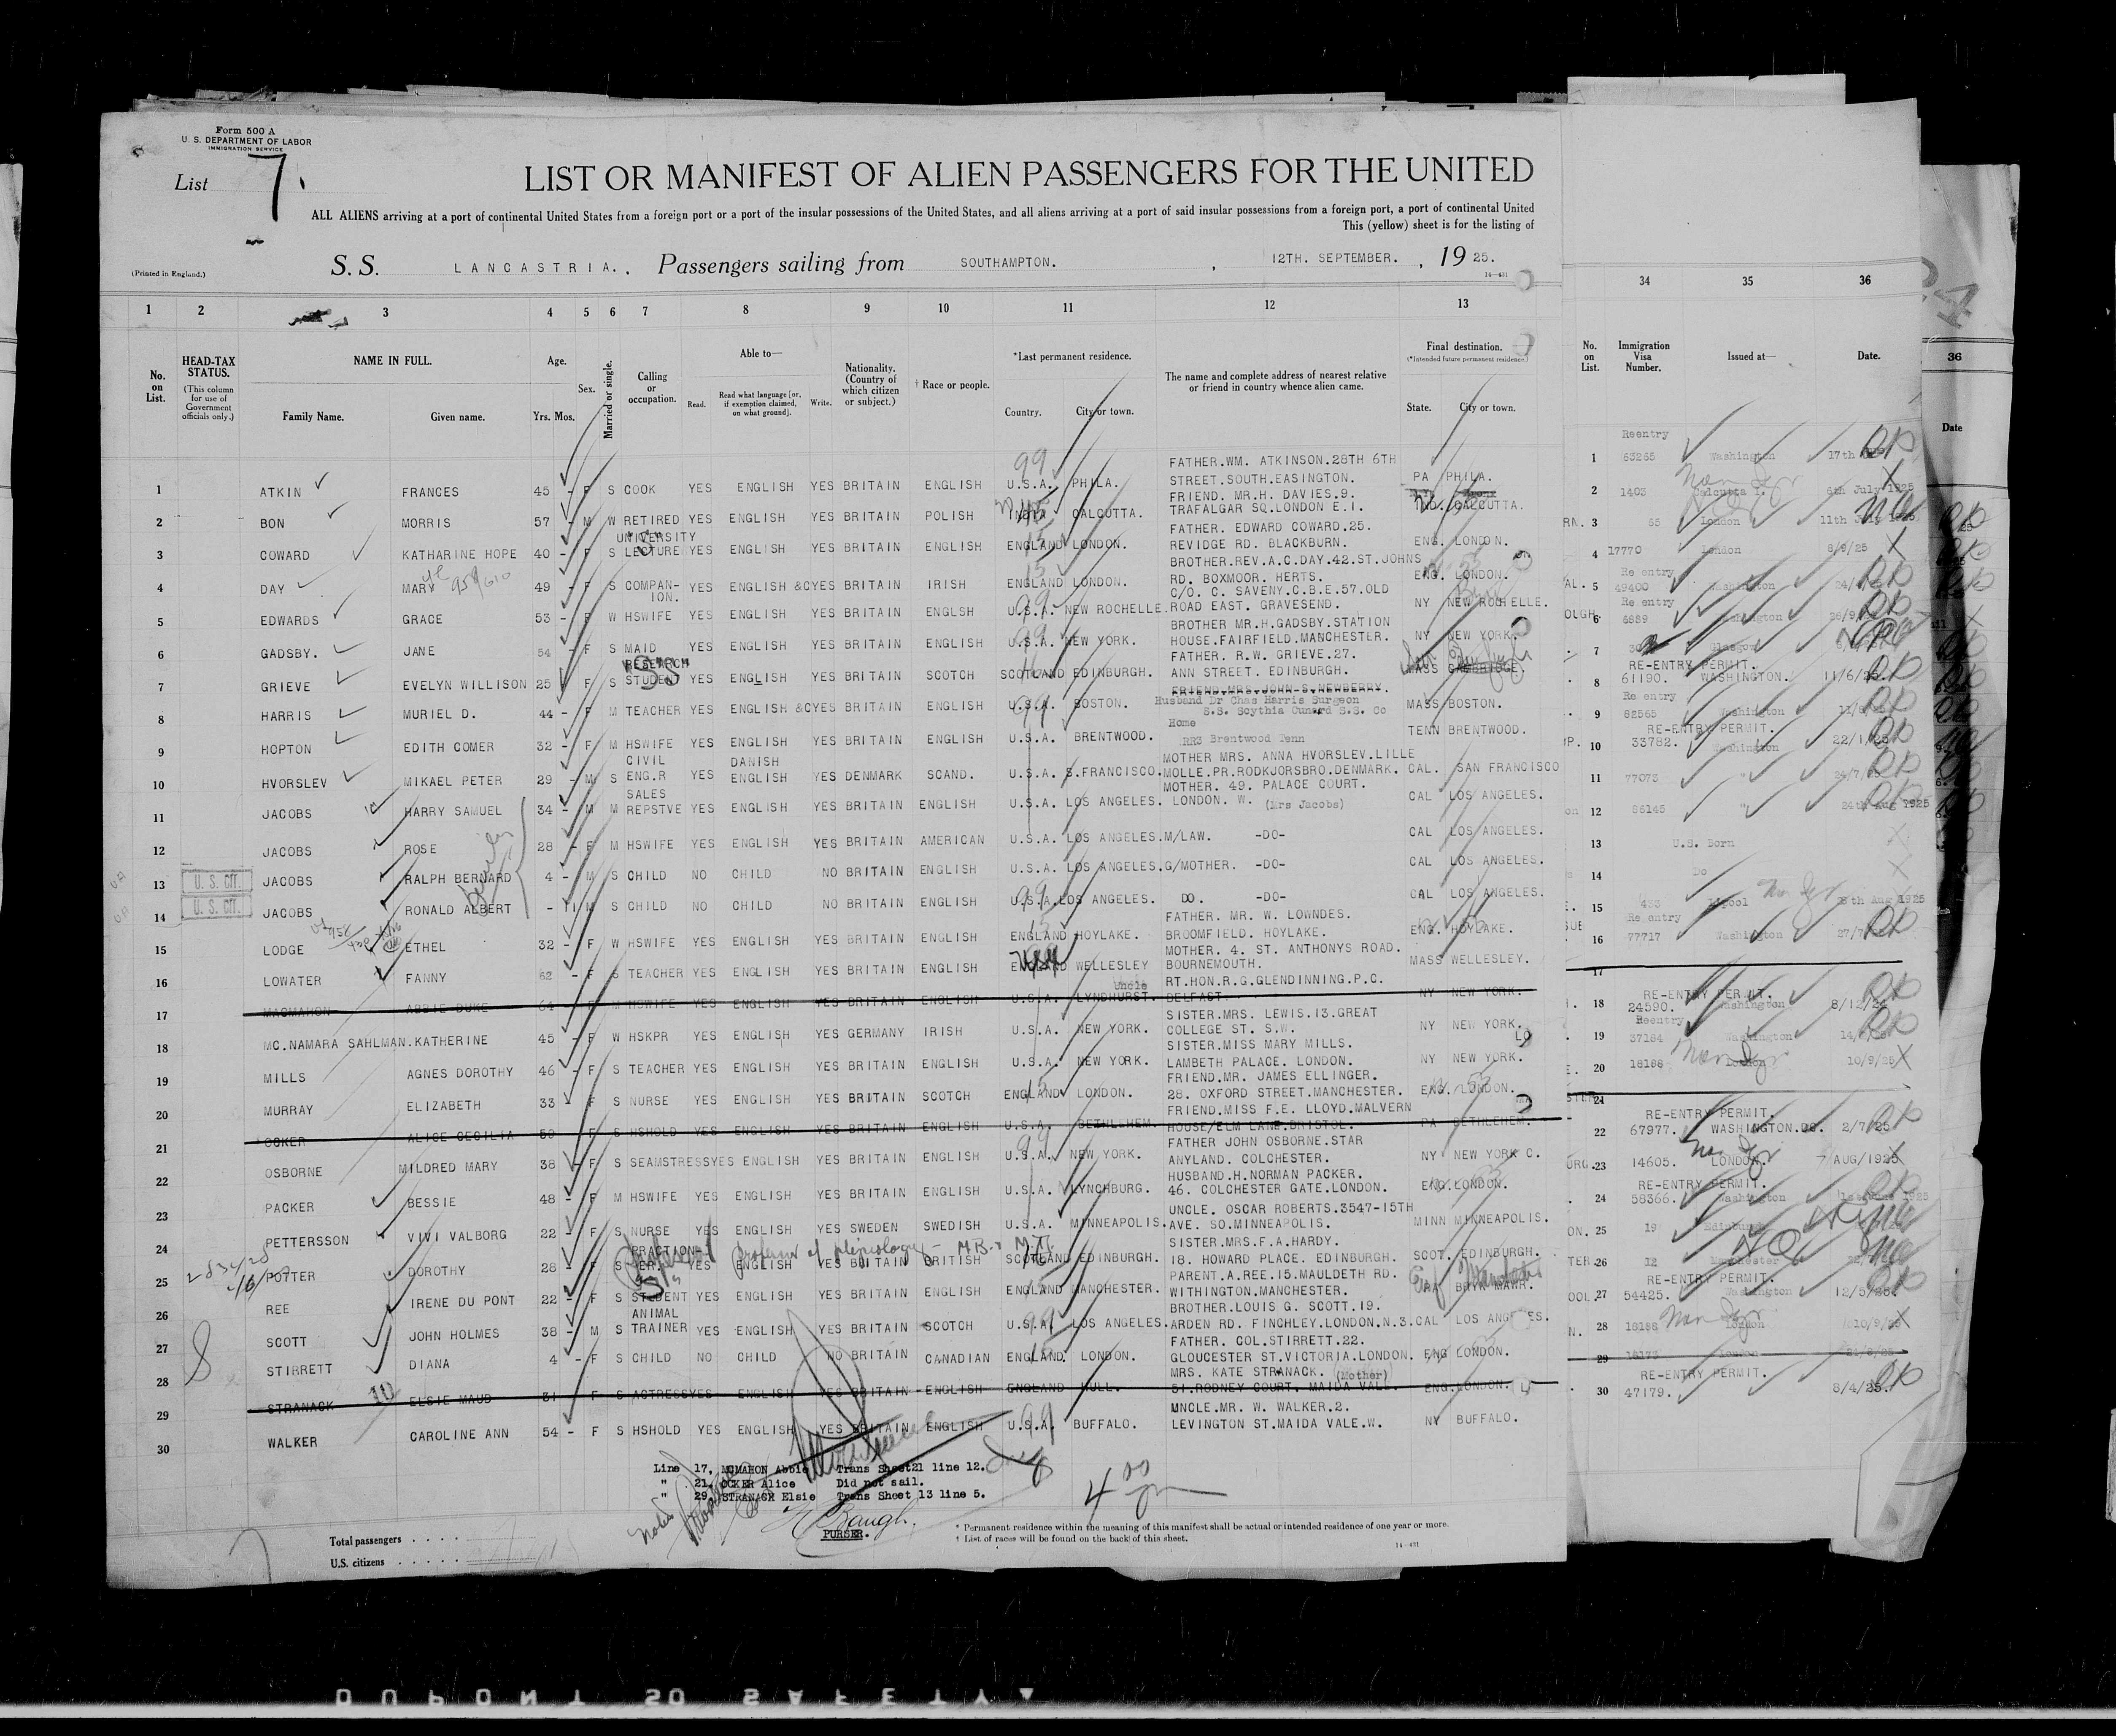 Form 500 A
U. S. DEPARTMENT OF LABOR
IMMIGRATION SERVICE
List 7.
LIST OR MANIFEST OF ALIEN PASSENGERS FOR THE UNITED
ALL ALIENS arriving at a port of continental United States from a foreign port or a port of the insular possessions of the United States, and all aliens arriving at a port of said insular possessions from a foreign port, a port of continental United
This (yellow) sheet is for the listing of
(Printed in England.)
S. S. LANCASTRIA. , Passengers sailing from SOUTHAMPTON. , 12TH. SEPTEMBER. , 19 25.
14—431
1 2 3 4 5 6 7 8 9 10 11 12 13 34 35 36
No. on List.
HEAD-TAX STATUS.
(This column for use of Government officials only.)
NAME IN FULL.
Family Name. Given name.
Age.
Yrs. Mos.
Sex.
Married or single.
Calling or occupation.
Able to—
Read. Read what language [or, if exemption claimed, on what ground]. Write.
Nationality. (Country of which citizen or subject.)
† Race or people.
*Last permanent residence.
Country. City or town.
The name and complete address of nearest relative or friend in country whence alien came.
Final destination.
(*Intended future permanent residence.)
State. City or town.
No. on List.
Immigration Visa Number.
Issued at—
Date.
36
Date
1 ATKIN FRANCES 45 - F S COOK YES ENGLISH YES BRITAIN ENGLISH U.S.A. PHILA. FATHER.WM. ATKINSON.28TH 6TH STREET.SOUTH.EASINGTON. PA PHILA.
2 BON MORRIS 57 - M W RETIRED YES ENGLISH YES BRITAIN POLISH INDIA CALCUTTA. FRIEND. MR.H. DAVIES.9. TRAFALGAR SQ.LONDON E.1. IND. CALCUTTA.
3 COWARD KATHARINE HOPE 40 - F S UNIVERSITY LECTURE YES ENGLISH YES BRITAIN ENGLISH ENGLAND LONDON. FATHER. EDWARD COWARD.25. REVIDGE RD. BLACKBURN. ENG. LONDON.
4 DAY MARY 49 - F S COMPAN-ION. YES ENGLISH &C YES BRITAIN IRISH ENGLAND LONDON. BROTHER.REV.A.C.DAY.42.ST.JOHNS RD. BOXMOOR. HERTS. ENG. LONDON.
5 EDWARDS GRACE 53 - F W HSWIFE YES ENGLISH YES BRITAIN ENGLSH U.S.A. NEW ROCHELLE. C/O. C. SAVENY.C.B.E.57.OLD ROAD EAST. GRAVESEND. NY NEW ROCHELLE.
6 GADSBY. JANE 54 - F S MAID YES ENGLISH YES BRITAIN ENGLISH U.S.A. NEW YORK. BROTHER MR.H.GADSBY.STATION HOUSE.FAIRFIELD.MANCHESTER. NY NEW YORK.
7 GRIEVE EVELYN WILLISON 25 F S RESEARCH STUDENT YES ENGLISH YES BRITAIN SCOTCH SCOTLAND EDINBURGH. FATHER. R.W. GRIEVE.27. ANN STREET. EDINBURGH. MASS CAMBRIDGE.
8 HARRIS MURIEL D. 44 - F M TEACHER YES ENGLISH &C YES BRITAIN ENGLISH U.S.A. BOSTON. FRIEND.MRS.JOHN S.NEWBERRY. Husband Dr Chas Harris Surgeon S.S. Scythia Cunard S.S. Co MASS BOSTON.
9 HOPTON EDITH COMER 32 - F M HSWIFE YES ENGLISH YES BRITAIN ENGLISH U.S.A. BRENTWOOD. Home RR3 Brentwood Tenn TENN BRENTWOOD.
10 HVORSLEV MIKAEL PETER 29 - M S CIVIL ENG.R YES DANISH ENGLISH YES DENMARK SCAND. U.S.A. S.FRANCISCO. MOTHER MRS. ANNA HVORSLEV.LILLE MOLLE.PR.RODKJORSBRO.DENMARK. CAL. SAN FRANCISCO
11 JACOBS HARRY SAMUEL 34 - M M SALES REPSTVE YES ENGLISH YES BRITAIN ENGLISH U.S.A. LOS ANGELES. MOTHER. 49. PALACE COURT. LONDON. W. (Mrs Jacobs) CAL LOS ANGELES.
12 JACOBS ROSE 28 - F M HSWIFE YES ENGLISH YES BRITAIN AMERICAN U.S.A. LOS ANGELES. M/LAW. -DO- CAL LOS ANGELES.
13 U. S. CIT. JACOBS RALPH BERNARD 4 - M S CHILD NO CHILD NO BRITAIN ENGLISH U.S.A. LOS ANGELES. G/MOTHER. -DO- CAL LOS ANGELES.
14 U. S. CIT. JACOBS RONALD ALBERT - M S CHILD NO CHILD NO BRITAIN ENGLISH U.S.A. LOS ANGELES. DO. -DO- CAL LOS ANGELES.
15 LODGE ETHEL 32 - F W HSWIFE YES ENGLISH YES BRITAIN ENGLISH ENGLAND HOYLAKE. FATHER. MR. W. LOWNDES. BROOMFIELD. HOYLAKE. ENG. HOYLAKE.
16 LOWATER FANNY 62 - F S TEACHER YES ENGLISH YES BRITAIN ENGLISH ENGLAND WELLESLEY MOTHER. 4. ST. ANTHONYS ROAD. BOURNEMOUTH. MASS WELLESLEY.
17 MACMAHON ABBIE DUKE 64 - F M HSWIFE YES ENGLISH YES BRITAIN ENGLISH U.S.A. LYNDHURST. Uncle RT.HON.R.G.GLENDINNING.P.C. BELFAST. NY NEW YORK.
18 MC.NAMARA SAHLMAN. KATHERINE 45 - F W HSKPR YES ENGLISH YES GERMANY IRISH U.S.A. NEW YORK. SISTER.MRS. LEWIS.13.GREAT COLLEGE ST. S.W. NY NEW YORK.
19 MILLS AGNES DOROTHY 46 - F S TEACHER YES ENGLISH YES BRITAIN ENGLISH U.S.A. NEW YORK. SISTER.MISS MARY MILLS. LAMBETH PALACE. LONDON. NY NEW YORK.
20 MURRAY ELIZABETH 33 - F S NURSE YES ENGLISH YES BRITAIN SCOTCH ENGLAND LONDON. FRIEND.MR. JAMES ELLINGER. 28. OXFORD STREET.MANCHESTER. ENG. LONDON.
21 OCKER ALICE CECILIA 59 - F S HSHOLD YES ENGLISH YES BRITAIN ENGLISH U.S.A. BETHLEHEM. FRIEND.MISS F.E. LLOYD.MALVERN HOUSE/ELM LANE.BRISTOL. PA BETHLEHEM.
22 OSBORNE MILDRED MARY 38 - F S SEAMSTRESS YES ENGLISH YES BRITAIN ENGLISH U.S.A. NEW YORK. FATHER JOHN OSBORNE.STAR ANYLAND. COLCHESTER. NY NEW YORK C.
23 PACKER BESSIE 48 - F M HSWIFE YES ENGLISH YES BRITAIN ENGLISH U.S.A. LYNCHBURG. HUSBAND.H.NORMAN PACKER. 46. COLCHESTER GATE.LONDON. ENG.LONDON.
24 PETTERSSON VIVI VALBORG 22 - F S NURSE YES ENGLISH YES SWEDEN SWEDISH U.S.A. MINNEAPOLIS. UNCLE. OSCAR ROBERTS.3547-15TH AVE. SO.MINNEAPOLIS. MINN MINNEAPOLIS.
25 POTTER DOROTHY 28 - F S PRACTION-ER. YES ENGLISH YES BRITAIN BRITISH SCOTLAND EDINBURGH. SISTER.MRS.F.A.HARDY. 18. HOWARD PLACE. EDINBURGH. SCOT. EDINBURGH.
26 REE IRENE DU PONT 22 - F S STUDENT YES ENGLISH YES BRITAIN ENGLISH ENGLAND MANCHESTER. PARENT.A.REE.15.MAULDETH RD. WITHINGTON.MANCHESTER. PA. BRYN MAWR.
27 SCOTT JOHN HOLMES 38 - M S ANIMAL TRAINER YES ENGLISH YES BRITAIN SCOTCH U.S.A. LOS ANGELES. BROTHER.LOUIS G. SCOTT.19. ARDEN RD. FINCHLEY.LONDON.N.3. CAL LOS ANGELES.
28 STIRRETT DIANA 4 - F S CHILD NO CHILD NO BRITAIN CANADIAN ENGLAND. LONDON. FATHER. COL.STIRRETT.22. GLOUCESTER ST.VICTORIA.LONDON. ENG LONDON.
29 STRANACK ELSIE MAUD 31 - F S ACTRESS YES ENGLISH YES BRITAIN ENGLISH ENGLAND HULL. MRS. KATE STRANACK. (Mother) 51.RODNEY COURT. MAIDA VALE. ENG.LONDON.
30 WALKER CAROLINE ANN 54 - F S HSHOLD YES ENGLISH YES BRITAIN ENGLISH U.S.A. BUFFALO. UNCLE.MR. W. WALKER.2. LEVINGTON ST.MAIDA VALE.W. NY BUFFALO.
1 Reentry 63265 Washington 17th
2 1403 Calcutta 6th July 1925
3 65 London 11th July 1925
4 17770 London 8/9/25
5 Re entry 49400 Washington
6 Re entry Washington
7 Glasgow
8 RE-ENTRY PERMIT. 61190. WASHINGTON. 11/6/25.
9 Re entry 82565 Washington
10 RE-ENTRY PERMIT. 33782. Washington 22/1/25
11 77073 " 24/7/25
12 86145 " 24th Aug 1925
13 U.S. Born
14 Do
15 L'pool Aug 1925
16 Re entry 77717 Washington
17
18 RE-ENTRY PERMIT. 24590. Washington 8/12/24
19 Reentry 37184 Washington
20 18188 London 10/9/25
21
22 RE-ENTRY PERMIT. 67977. WASHINGTON.DC. 2/7/25
23 14605. LONDON. 7 AUG/1925
24 RE-ENTRY PERMIT. 58366. Washington June 1925
25 19 Edinburgh
26 12 Manchester
27 RE-ENTRY PERMIT. 54425. Washington 12/5/25.
28 18188 London 10/9/25
29 London
30 RE-ENTRY PERMIT. 47179. 8/4/25.
Line 17, MCMAHON Abbie Trans Sheet 21 line 12.
" 21, OCKER Alice Did not sail.
" 29, STRANACK Elsie Trans Sheet 13 line 5.
PURSER.
Total passengers . . . .
U.S. citizens . . . . .
* Permanent residence within the meaning of this manifest shall be actual or intended residence of one year or more.
† List of races will be found on the back of this sheet.
14—431
DUPONT SO SAFETY